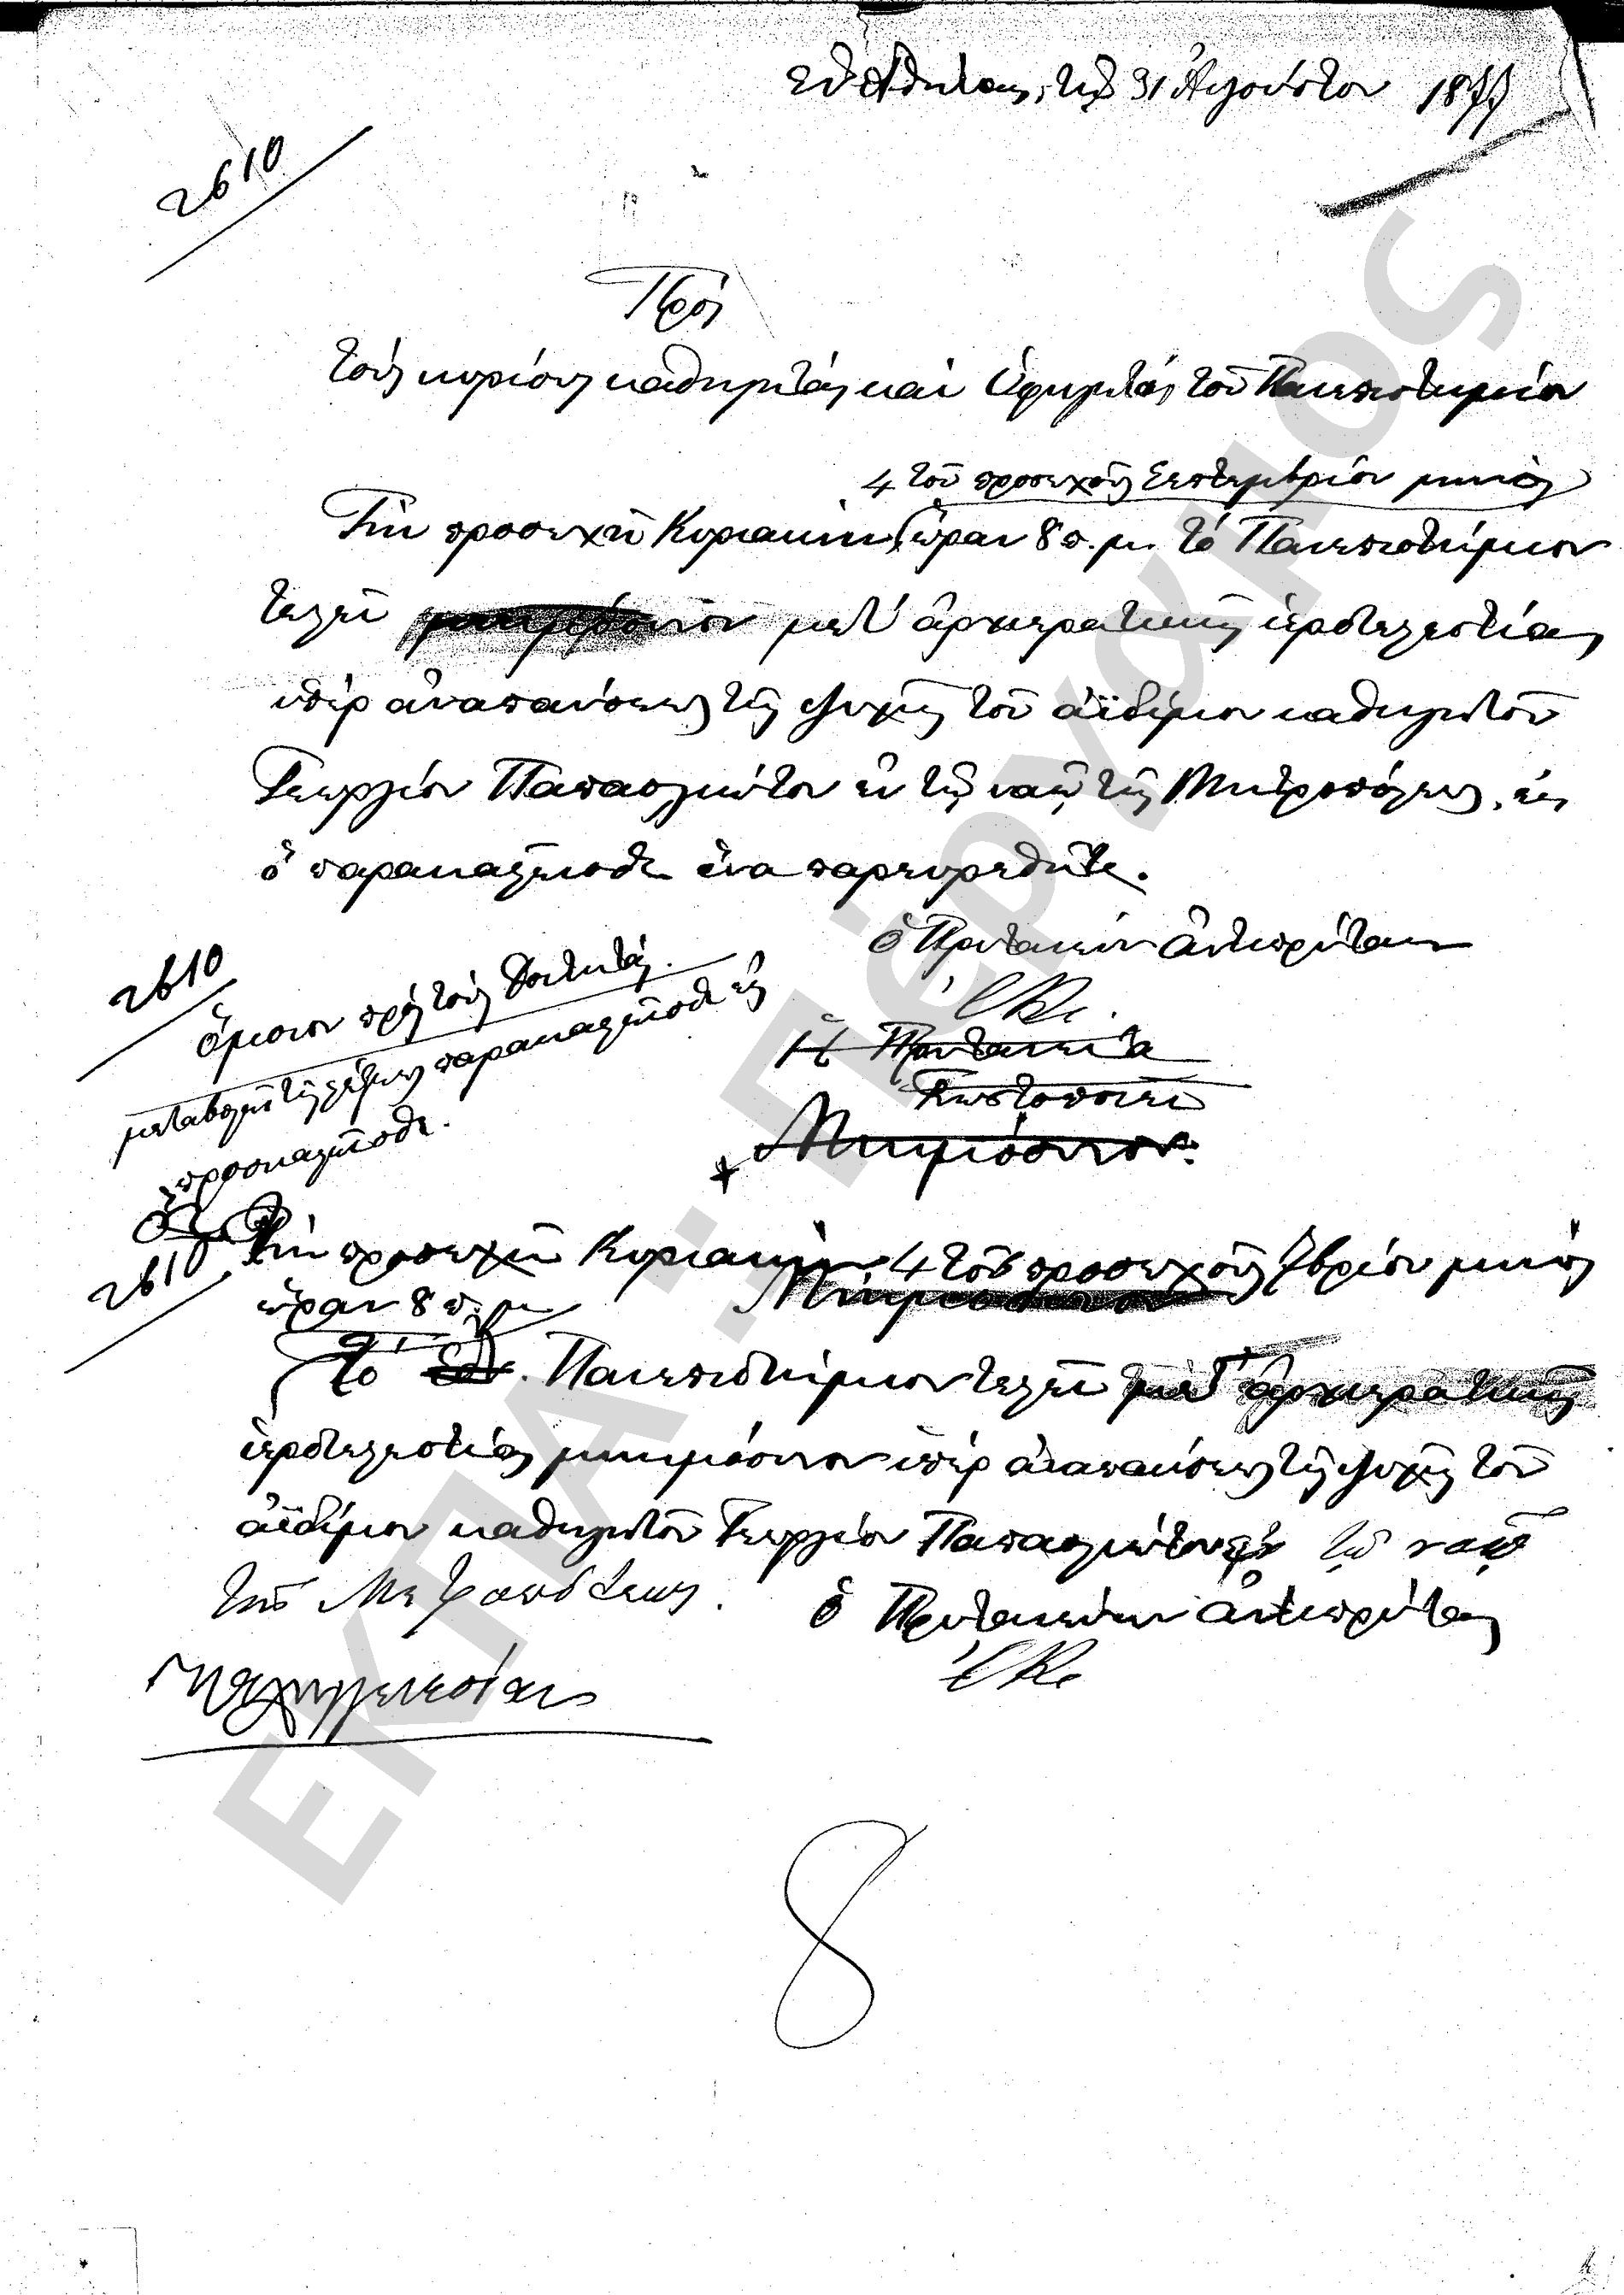 Ἐν Ἀθήναις, τῇ 31 Αὐγούστου 1877
2610
Πρός
τοὺς κυρίους καθηγητὰς καὶ ὑφηγητὰς τοῦ Πανεπιστημίου
4 τοῦ προσεχοῦς Σεπτεμβρίου μηνός
Τὴν προσεχῆ Κυριακήν, ὥραν 8 π.μ. τὸ Πανεπιστήμιον
τελεῖ μνημόσυνον μετ' ἀρχιερατικῆς ἱεροτελεστίας
ὑπὲρ ἀναπαύσεως τῆς ψυχῆς τοῦ ἀϊδίμου καθηγητοῦ
Γεωργίου Παπασλιώτου ἐν τῷ ναῷ τῆς Μητροπόλεως, εἰς
ὃ παρακαλεῖσθε ἵνα παρευρεθῆτε.
ὁ Πρυτανεύων ἀντιπρύτανις
2610
ὅμοιον πρὸς τοὺς φοιτητάς.
μεταβολῇ τῆς λέξεως παρακαλεῖσθε εἰς
προσκαλεῖσθε.
Ἡ Πρυτανεία
Γνωστοποιεῖ
Μνημόσυνον.
2610
Τὴν προσεχῆ Κυριακὴν 4 τοῦ προσεχοῦς 7βρίου μηνὸς
ὥραν 8 π.μ. Μνημόσυνον
Τὸ Ἐθ. Πανεπιστήμιον τελεῖ μετ' ἀρχιερατικῆς
ἱεροτελεστίας μνημόσυνον ὑπὲρ ἀναπαύσεως τῆς ψυχῆς τοῦ
ἀϊδίμου καθηγητοῦ Γεωργίου Παπασλιώτου ἐν τῷ ναῷ
τῆς Μητροπόλεως.
ὁ Πρυτανεύων ἀντιπρύτανις
Παλιγγενεσίαν
8
ΕΚΠΑ: Πέργαμος